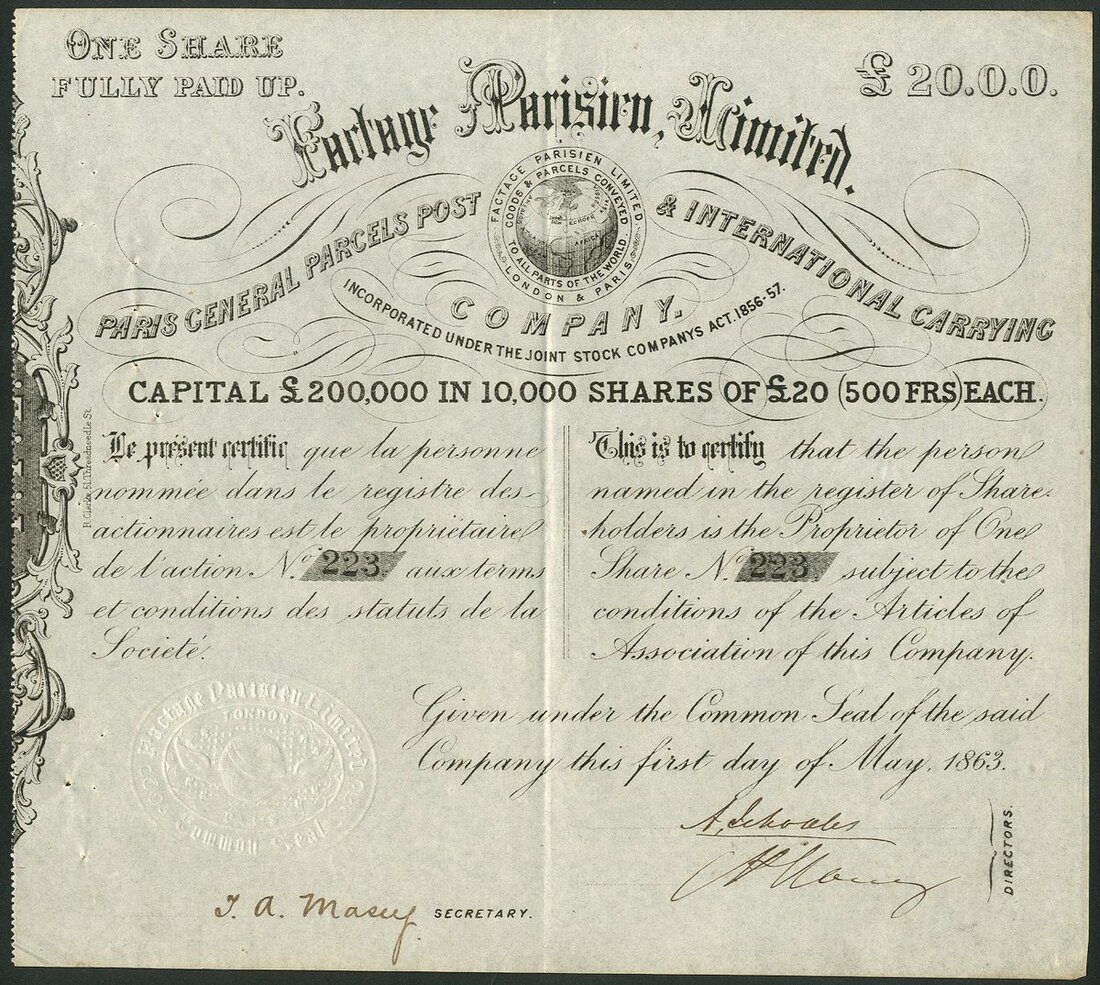 ONE SHARE
FULLY PAID UP.
£ 20.0.0.
Factage Parisien, Limited.
FACTAGE PARISIEN LIMITED
GOODS & PARCELS CONVEYED
TO ALL PARTS OF THE WORLD.
LONDON & PARIS.
PARIS GENERAL PARCELS POST & INTERNATIONAL CARRYING
COMPANY.
INCORPORATED UNDER THE JOINT STOCK COMPANYS ACT. 1856-57.
CAPITAL £200,000 IN 10,000 SHARES OF £20 (500 FRS) EACH.
Le présent certific que la personne
nommée dans le registre des
actionnaires est le propriétaire
de l'action No. 223 aux terms
et conditions des statuts de la
Societé.
This is to certify that the person
named in the register of Share-
holders is the Proprietor of One
Share No. 223 subject to the
conditions of the Articles of
Association of this Company.
Given under the Common Seal of the said
Company this first day of May, 1863.
Factage Parisien Limited
LONDON
PARIS
Common Seal
DIRECTORS.
SECRETARY.
51 Threadneedle St.